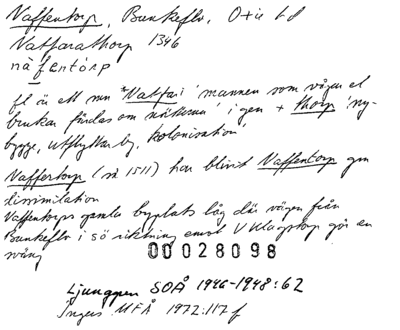 Naffentorp, Bunkeflo, Oxie hd
Natfarathorp 1346
nàfentórp
fl är ett mn *Natfari 'mannen som vågar el
brukar färdas om nätterna' i gen + thorp 'ny-
bygge, utflyttarby, kolonisation'
Naffertorp (så 1511) har blivit Naffentorp gm
dissimilation
Naffentorps gamla byplats låg där vägen från
Bunkeflo i sö riktning emot V Klagstorp gör en
sväng
00028098
Ljunggren SOÅ 1946-1948:62
Ingers MFÅ 1972:117 f